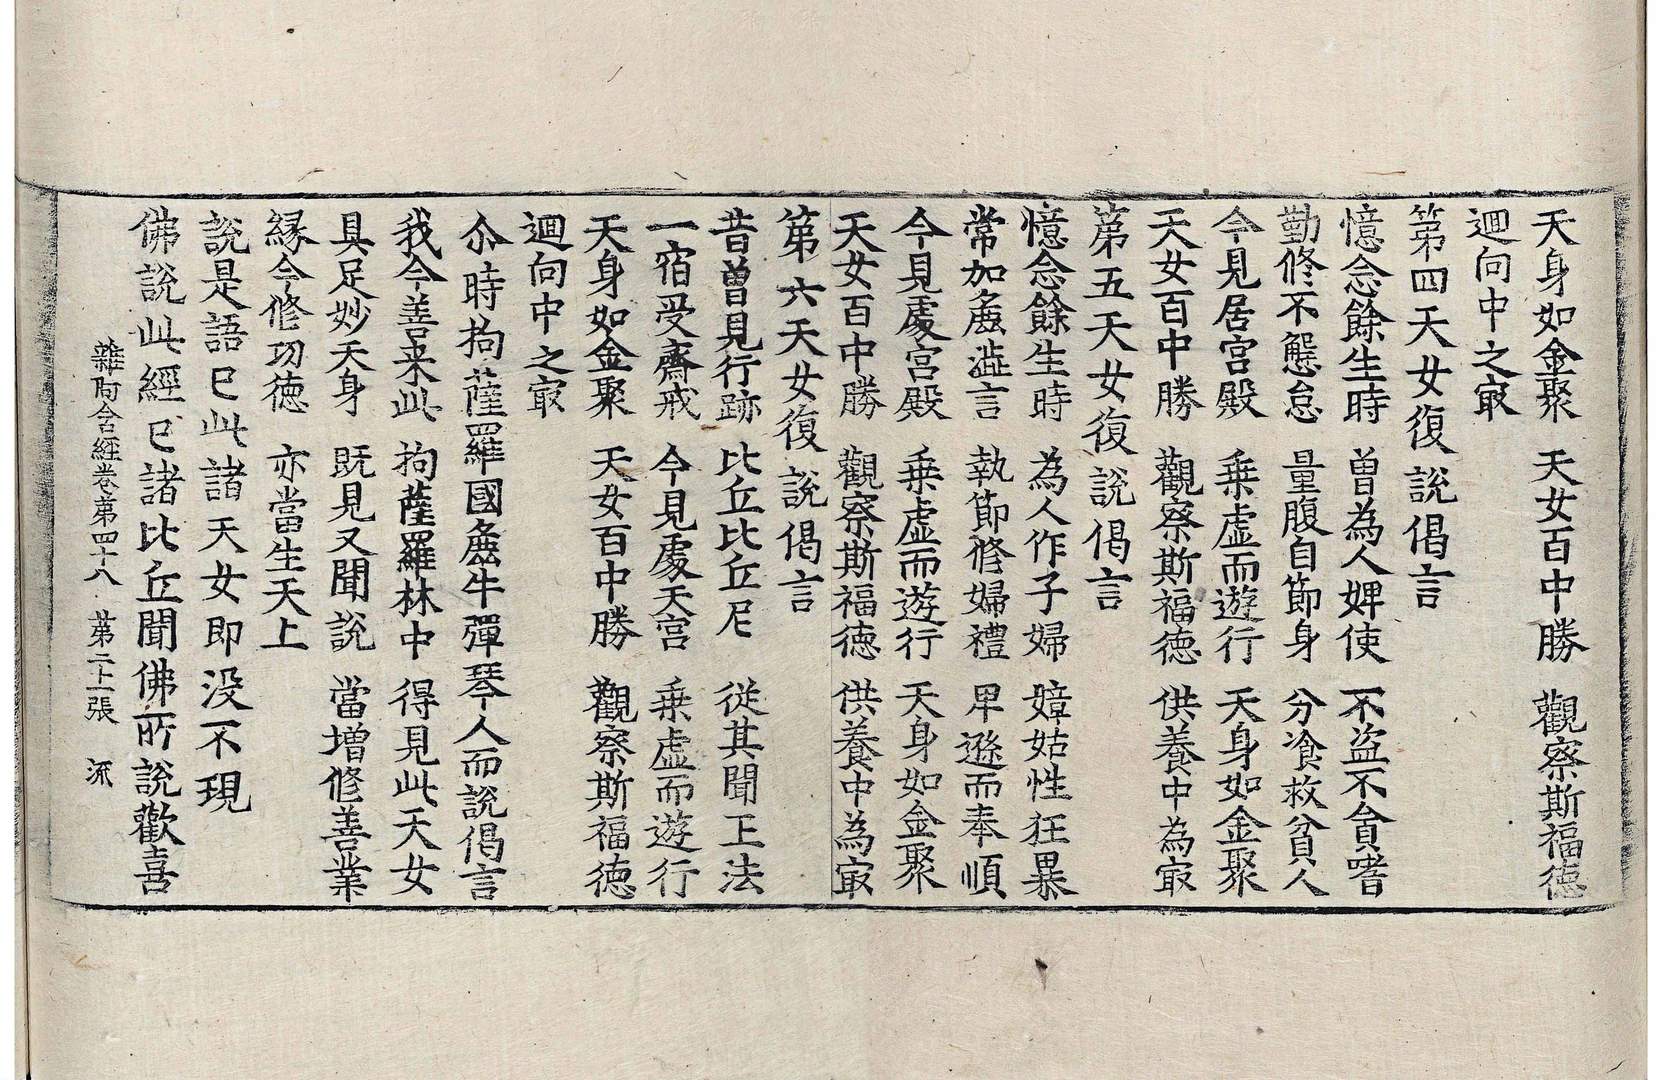 天身如金聚　天女百中勝　觀察斯福德
迴向中之㝡
第四天女復說偈言
憶念餘生時　曽為人婢使　不盗不貪嗜
勤修不懈怠　量腹自節身　分飡救貧人
今見居宮殿　乗虛而遊行　天身如金聚
天女百中勝　觀察斯福德　供養中為㝡
第五天女復說偈言
憶念餘生時　為人作子婦　嫜姑性狂暴
常加麁澁言　執節修婦禮　卑遜而奉順
今見處宮殿　乗虛而遊行　天身如金聚
天女百中勝　觀察斯福德　供養中為㝡
第六天女復說偈言
昔曽見行跡　比丘比丘尼　從其聞正法
一宿受齋戒　今見處天宮　乗虛而遊行
天身如金聚　天女百中勝　觀察斯福德
迴向中之㝡
尒時拘薩羅國麁牛彈琴人而說偈言
我今善来此　拘薩羅林中　得見此天女
具足妙天身　既見又聞說　當增修善業
緣今修功德　亦當生天上
說是語已此諸天女即没不現
佛說此經已諸比丘聞佛所說歡喜
雜阿含經卷第四十八　第二十張　流